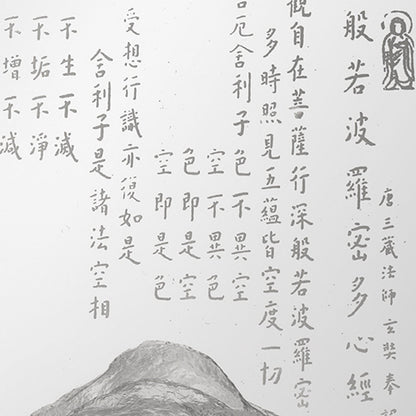 般若波羅密多心經
唐三藏法師玄奘奉
觀自在菩薩行深般若波羅密
多時照見五蘊皆空度一切
厄舍利子色不異空
空不異色
色即是空
空即是色
受想行識亦復如是
舍利子是諸法空相
不生不滅
不垢不淨
不增不減